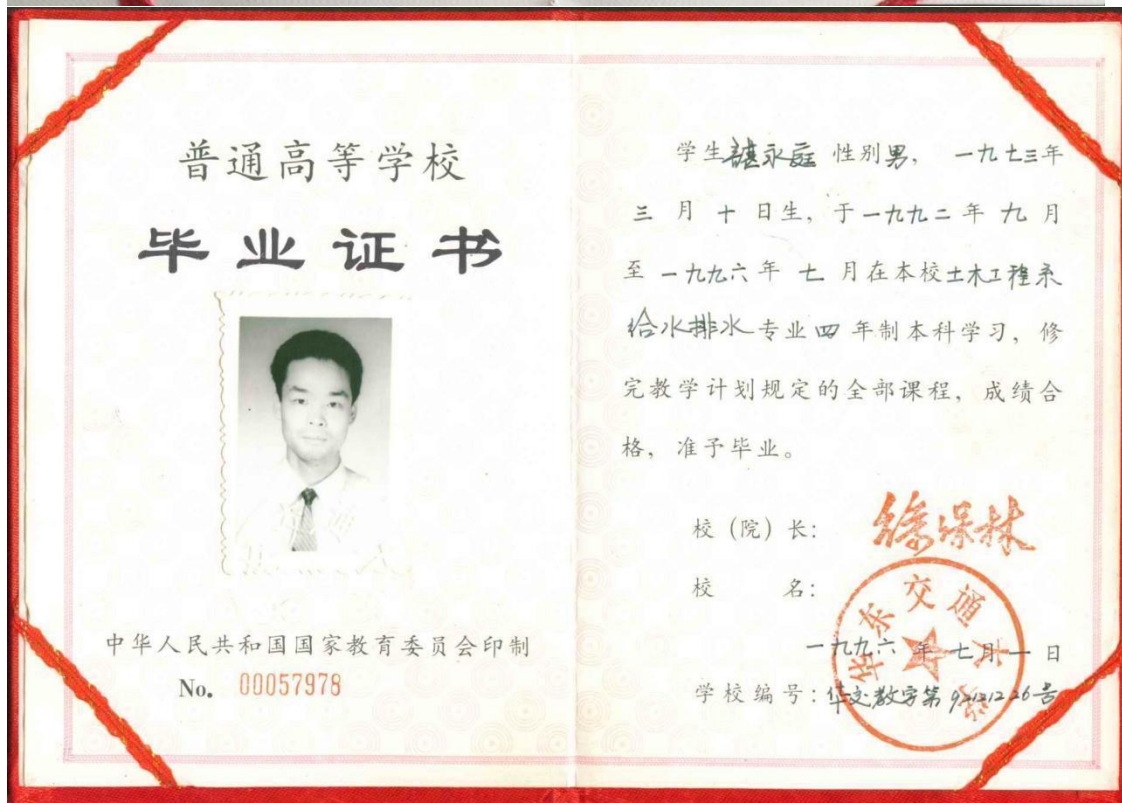 普通高等学校
毕业证书
中华人民共和国国家教育委员会印制
No. 00057978
学生谌永庭 性别男，一九七三年
三月十日生，于一九九二年九月
至一九九六年七月在本校土木工程系
给水排水专业四年制本科学习，修
完教学计划规定的全部课程，成绩合
格，准予毕业。
校（院）长：
校 名：
华东交通大学
一九九六年七月一日
学校编号：华交教字第